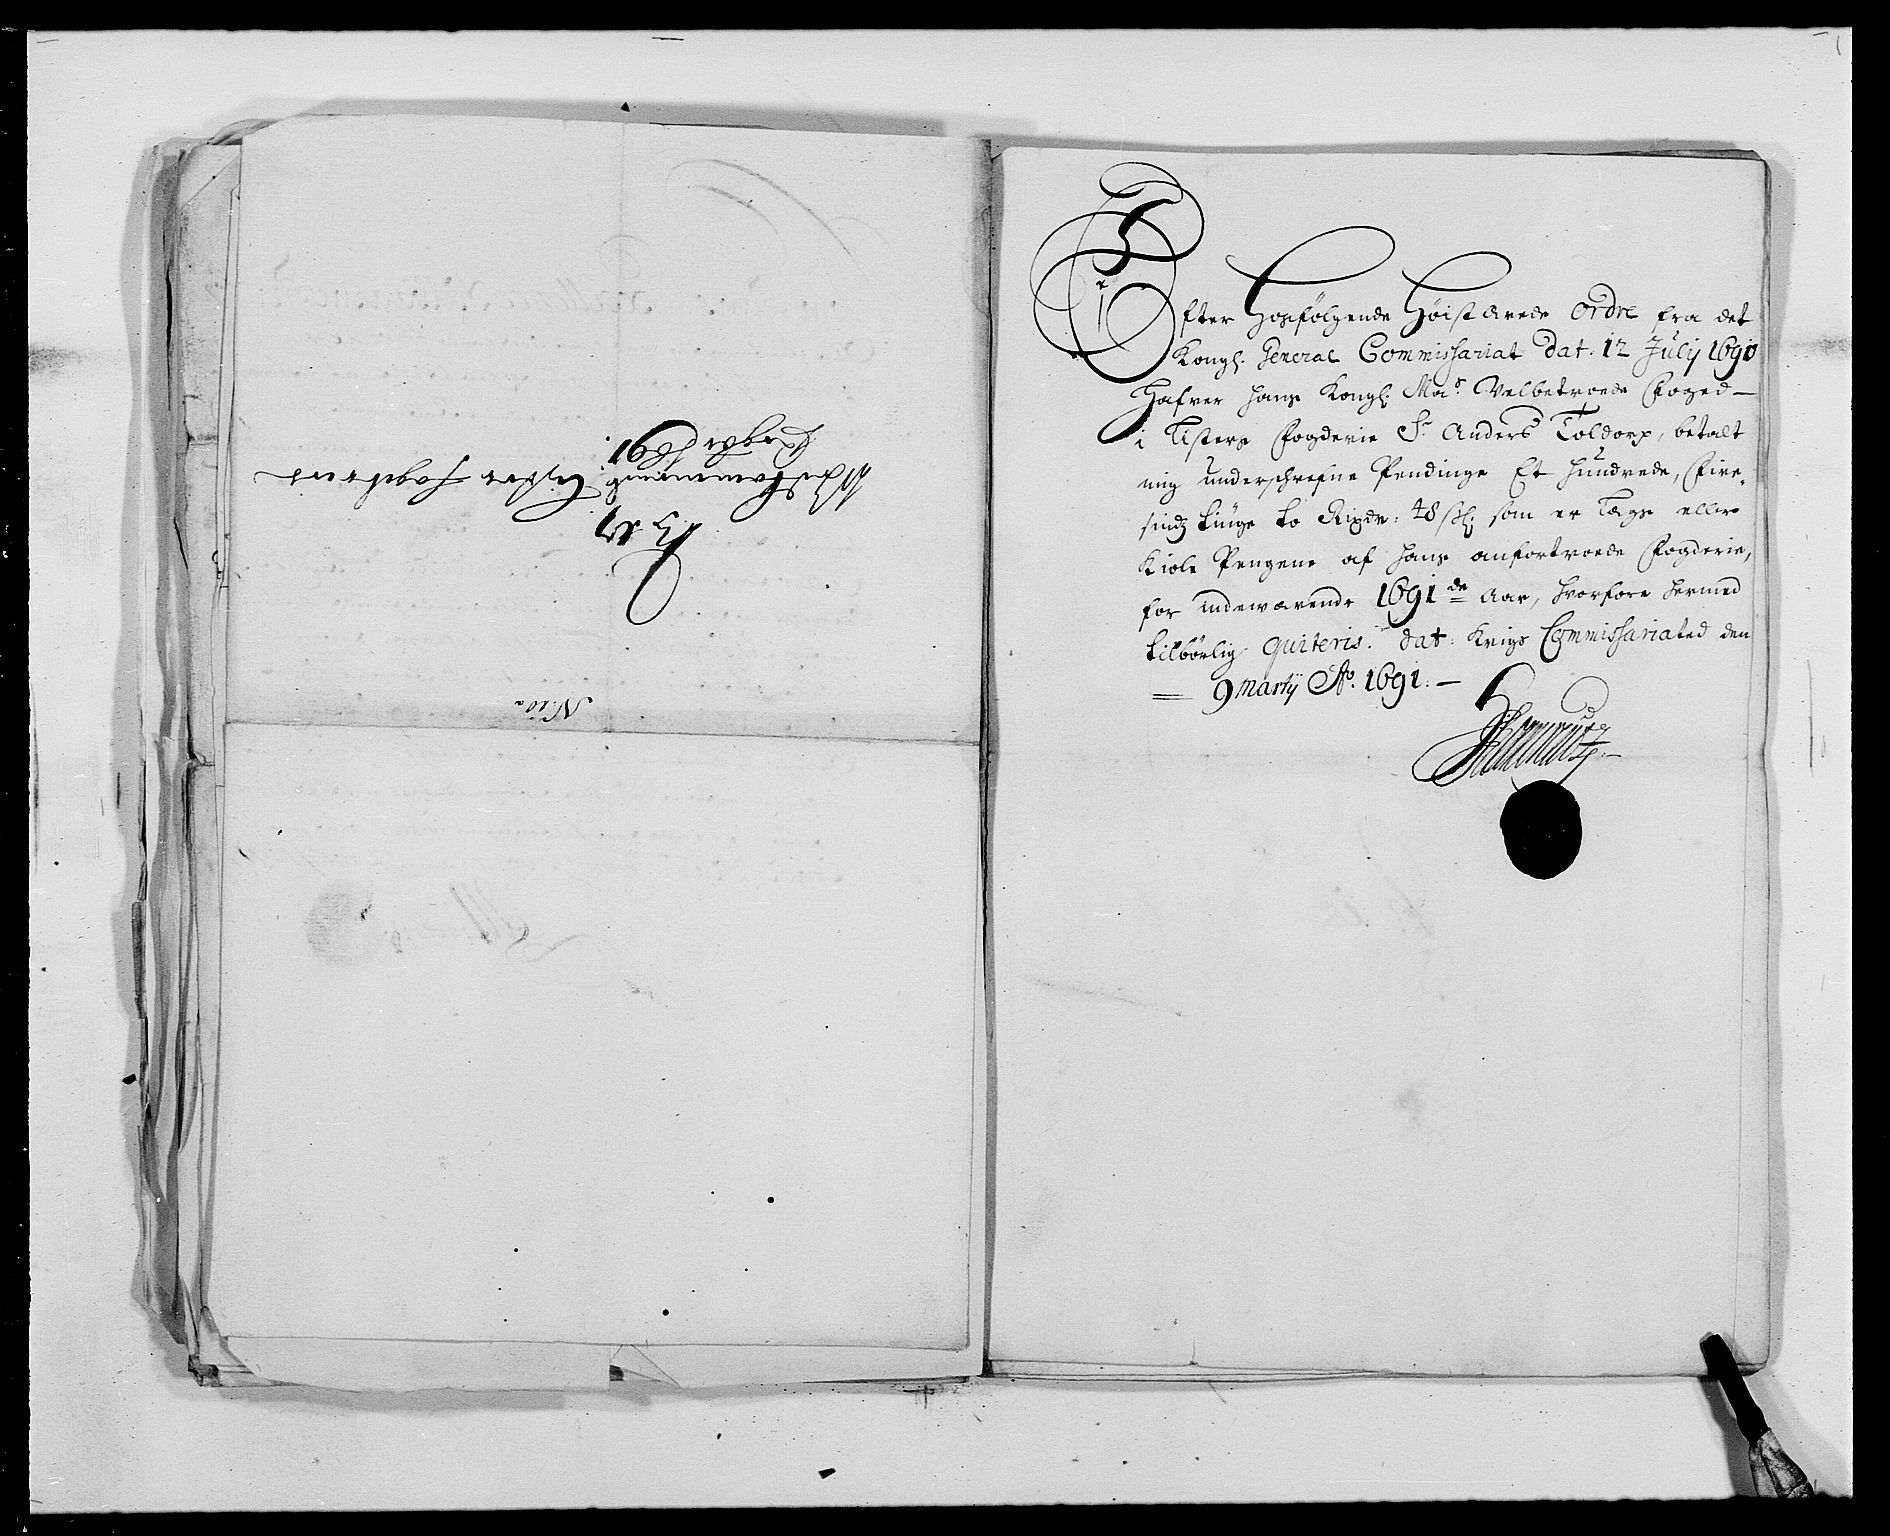 Efter Hosfølgende Høistærede Ordre fra det
Kongl. General Commissariat dat. 12 July 1690
Hafver hans Kongl: Ma:s Velbetroede Foged
i Listers Fogderie Sr. Anders Toldorp, betalt
mig underschrefne Pendinge Et Hundrede, Fire-
sindz tiuge to Rixdr: 48 sk: som er Lægs eller
Kiole Pengene af hans anfortroede Fogderie,
for indeværende 1691 de Aar, hvorfore hermed
tilbørlig quiteris. dat: Krigs Commissariated den
9 Martij Ao. 1691.
N: 10
Lister
1691